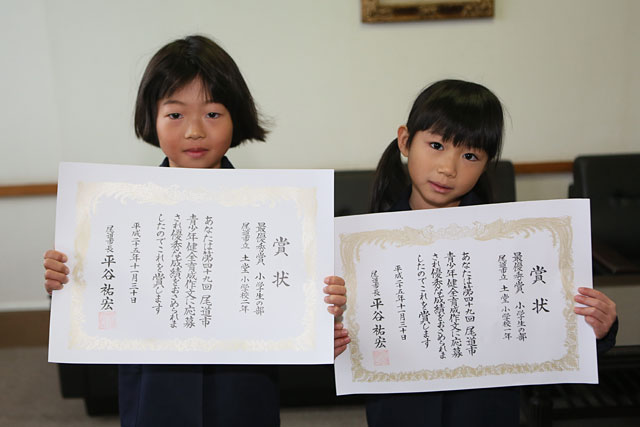 賞状
最優秀賞 小学生の部
尾道市立 土堂 小学校二年
あなたは第四十九回 尾道市
青少年健全育成作文に応募
され優秀な成績をおさめられま
したのでこれを賞します
平成二十五年十一月三十日
尾道市長 平谷祐宏
賞状
最優秀賞 小学生の部
尾道市立 土堂 小学校一年
あなたは第四十九回 尾道市
青少年健全育成作文に応募
され優秀な成績をおさめられま
したのでこれを賞します
平成二十五年十一月三十日
尾道市長 平谷祐宏